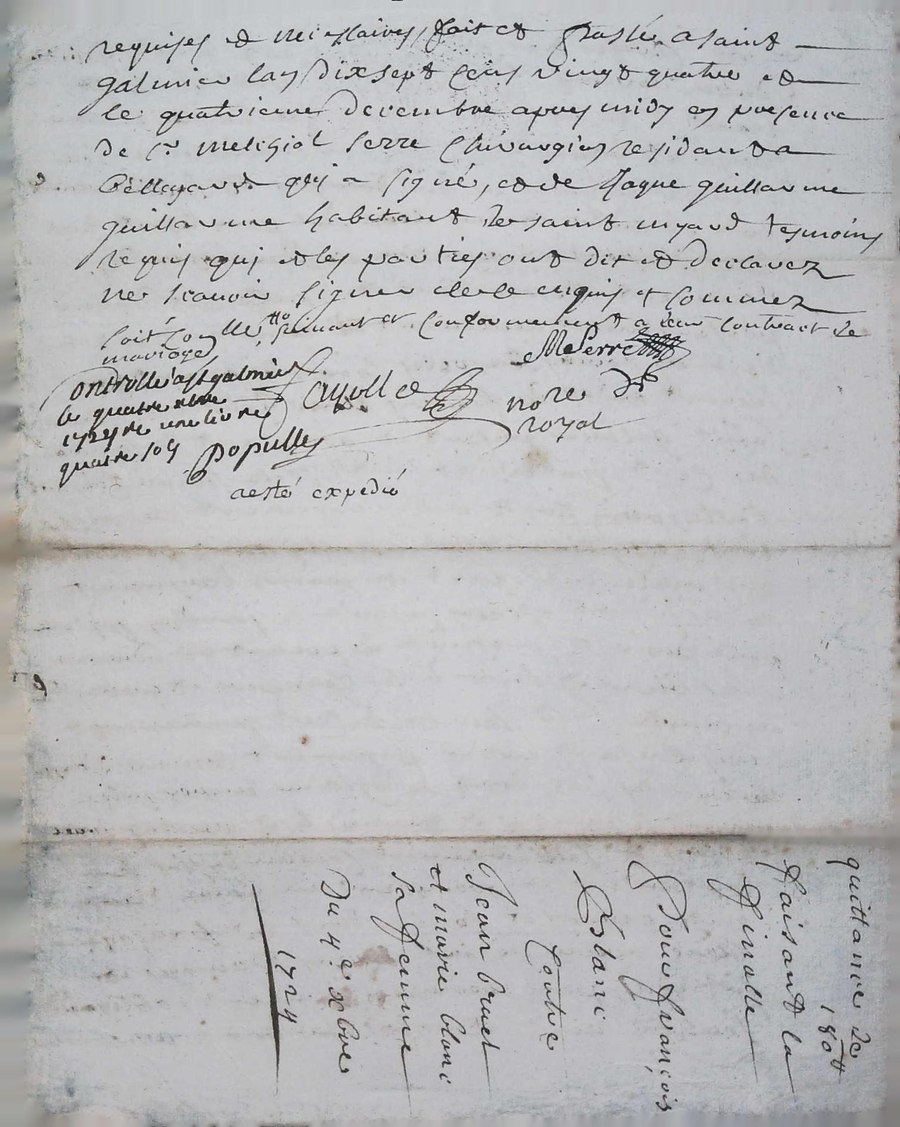 requises et necessaires, fait et passé a saint
galmier lan dix sept cens vingt quatre et
le quatrieme decembre apres midy en presence
de sr. melchiol serre chirurgien residant a
bellegarde qui a signé, et de Jaque guillaume
guillaume habitant de saint myard tesmoins
requis qui et les parties ont dit et declarez
ne scavoir signer de ce enquis et sommez
soit conllé suivant et conformement a leur contract de
mariage
MSerre
Controllé a st galmier
le quatre xbre
1724 de une livre
quatre sols
populle
no.re Rl.
royal
a esté expedié
quittance de
180lt
faisant la
finalle
Pour françois
Blanc
Contre
Jean bruet
et marie blanc
sa femme
Du 4.e xbre
1724